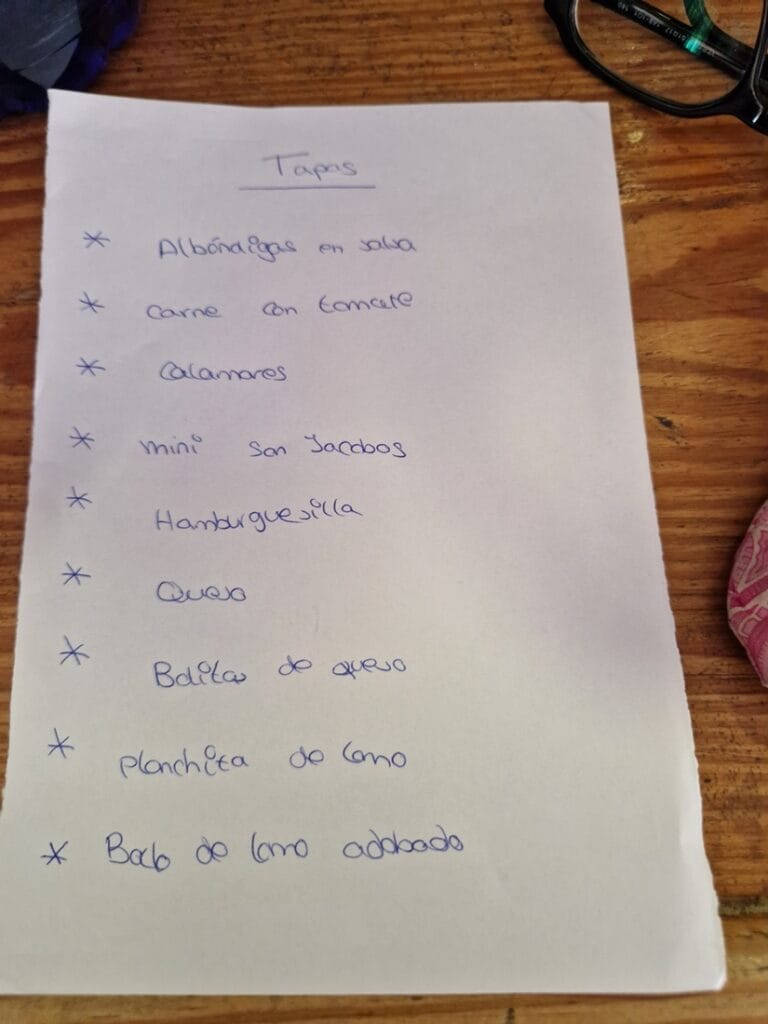 Tapas
* Albóndigas en salsa
* Carne con tomate
* Calamares
* mini San Jacobos
* Hamburguesilla
* Queso
* Bolitas de queso
* Planchita de lomo
* de lomo adobado